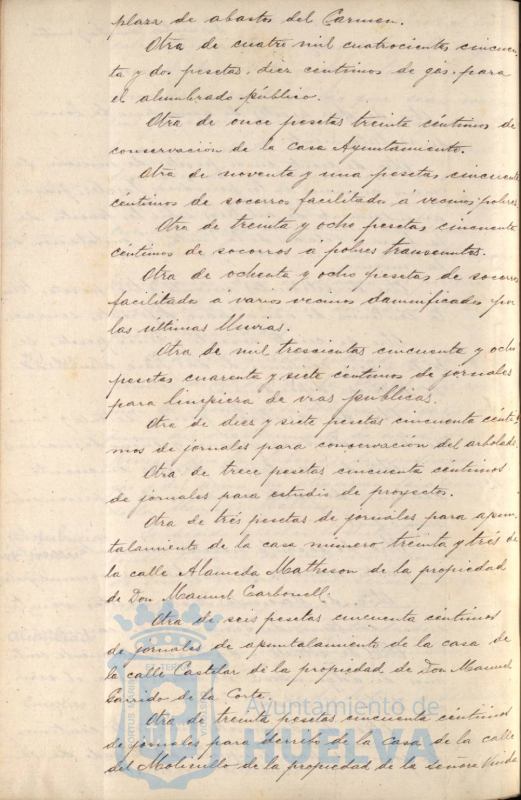 plaza de abastos del Carmen.
Otra de cuatro mil cuatrocientas cincuen-
ta y dos pesetas, diez céntimos de gas, para
el alumbrado público.
Otra de once pesetas treinta céntimos de
conservación de la casa Ayuntamiento.
Otra de noventa y una pesetas cincuenta
céntimos de socorros facilitados á vecinos pobres
Otra de treinta y ocho pesetas cincuenta
céntimos de socorros á pobres transeuntes.
Otra de ochenta y ocho pesetas de socorros
facilitado á varios vecinos damnificados por
las últimas lluvias.
Otra de mil trescientas cincuenta y ocho
pesetas cuarenta y siete céntimos de jornales
para limpieza de vias públicas.
Otra de diez y siete pesetas cincuenta cénti-
mos de jornales para conservación del arbolado.
Otra de trece pesetas cincuenta céntimos
de jornales para estudio de proyectos.
Otra de trés pesetas de jornales para apun-
talamiento de la casa número treinta y trés de
la calle Alameda Matheson de la propiedad
de Don Manuel Carbonell.
Otra de seis pesetas cincuenta céntimos
de jornales de apuntalamiento de la casa de
la calle Castelar de la propiedad de Don Manuel
Garrido de la Corte.
Otra de treinta pesetas cincuenta céntimos
de jornales para derribo de la casa de la calle
del Molinillo de la propiedad de la señora Viuda
Ayuntamiento de
HUELVA
PORTUS MARIS
ET TERRAE